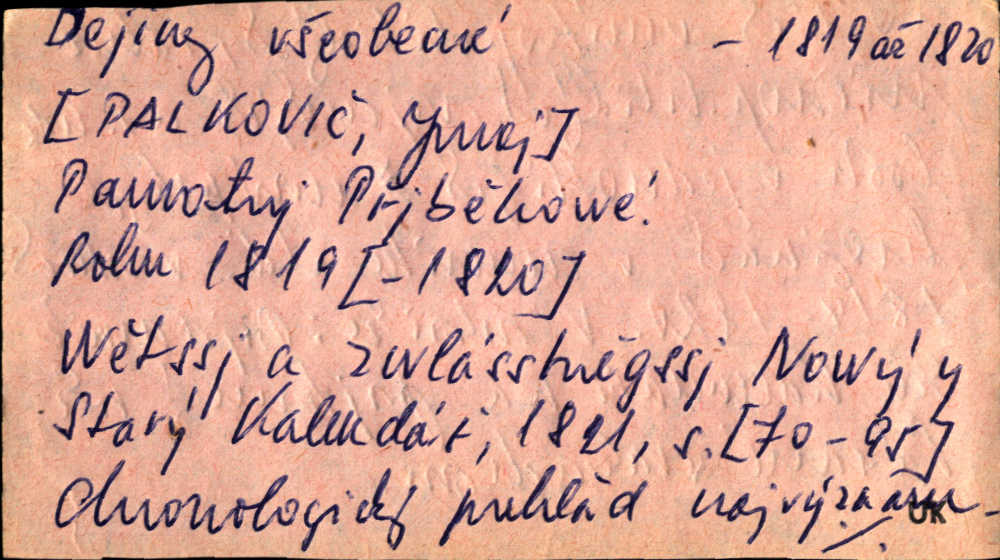 Dejiny všeobecné - 1819 až 1820
[PALKOVIČ, Juraj]
Pamětnj Přjběhowé.
Roku 1819 [-1820]
Wětssj a zwlásstněgssj Nowý y
Starý Kalendář, 1821, s. [70-95]
Chronologický prehlád najvýznam-
UK